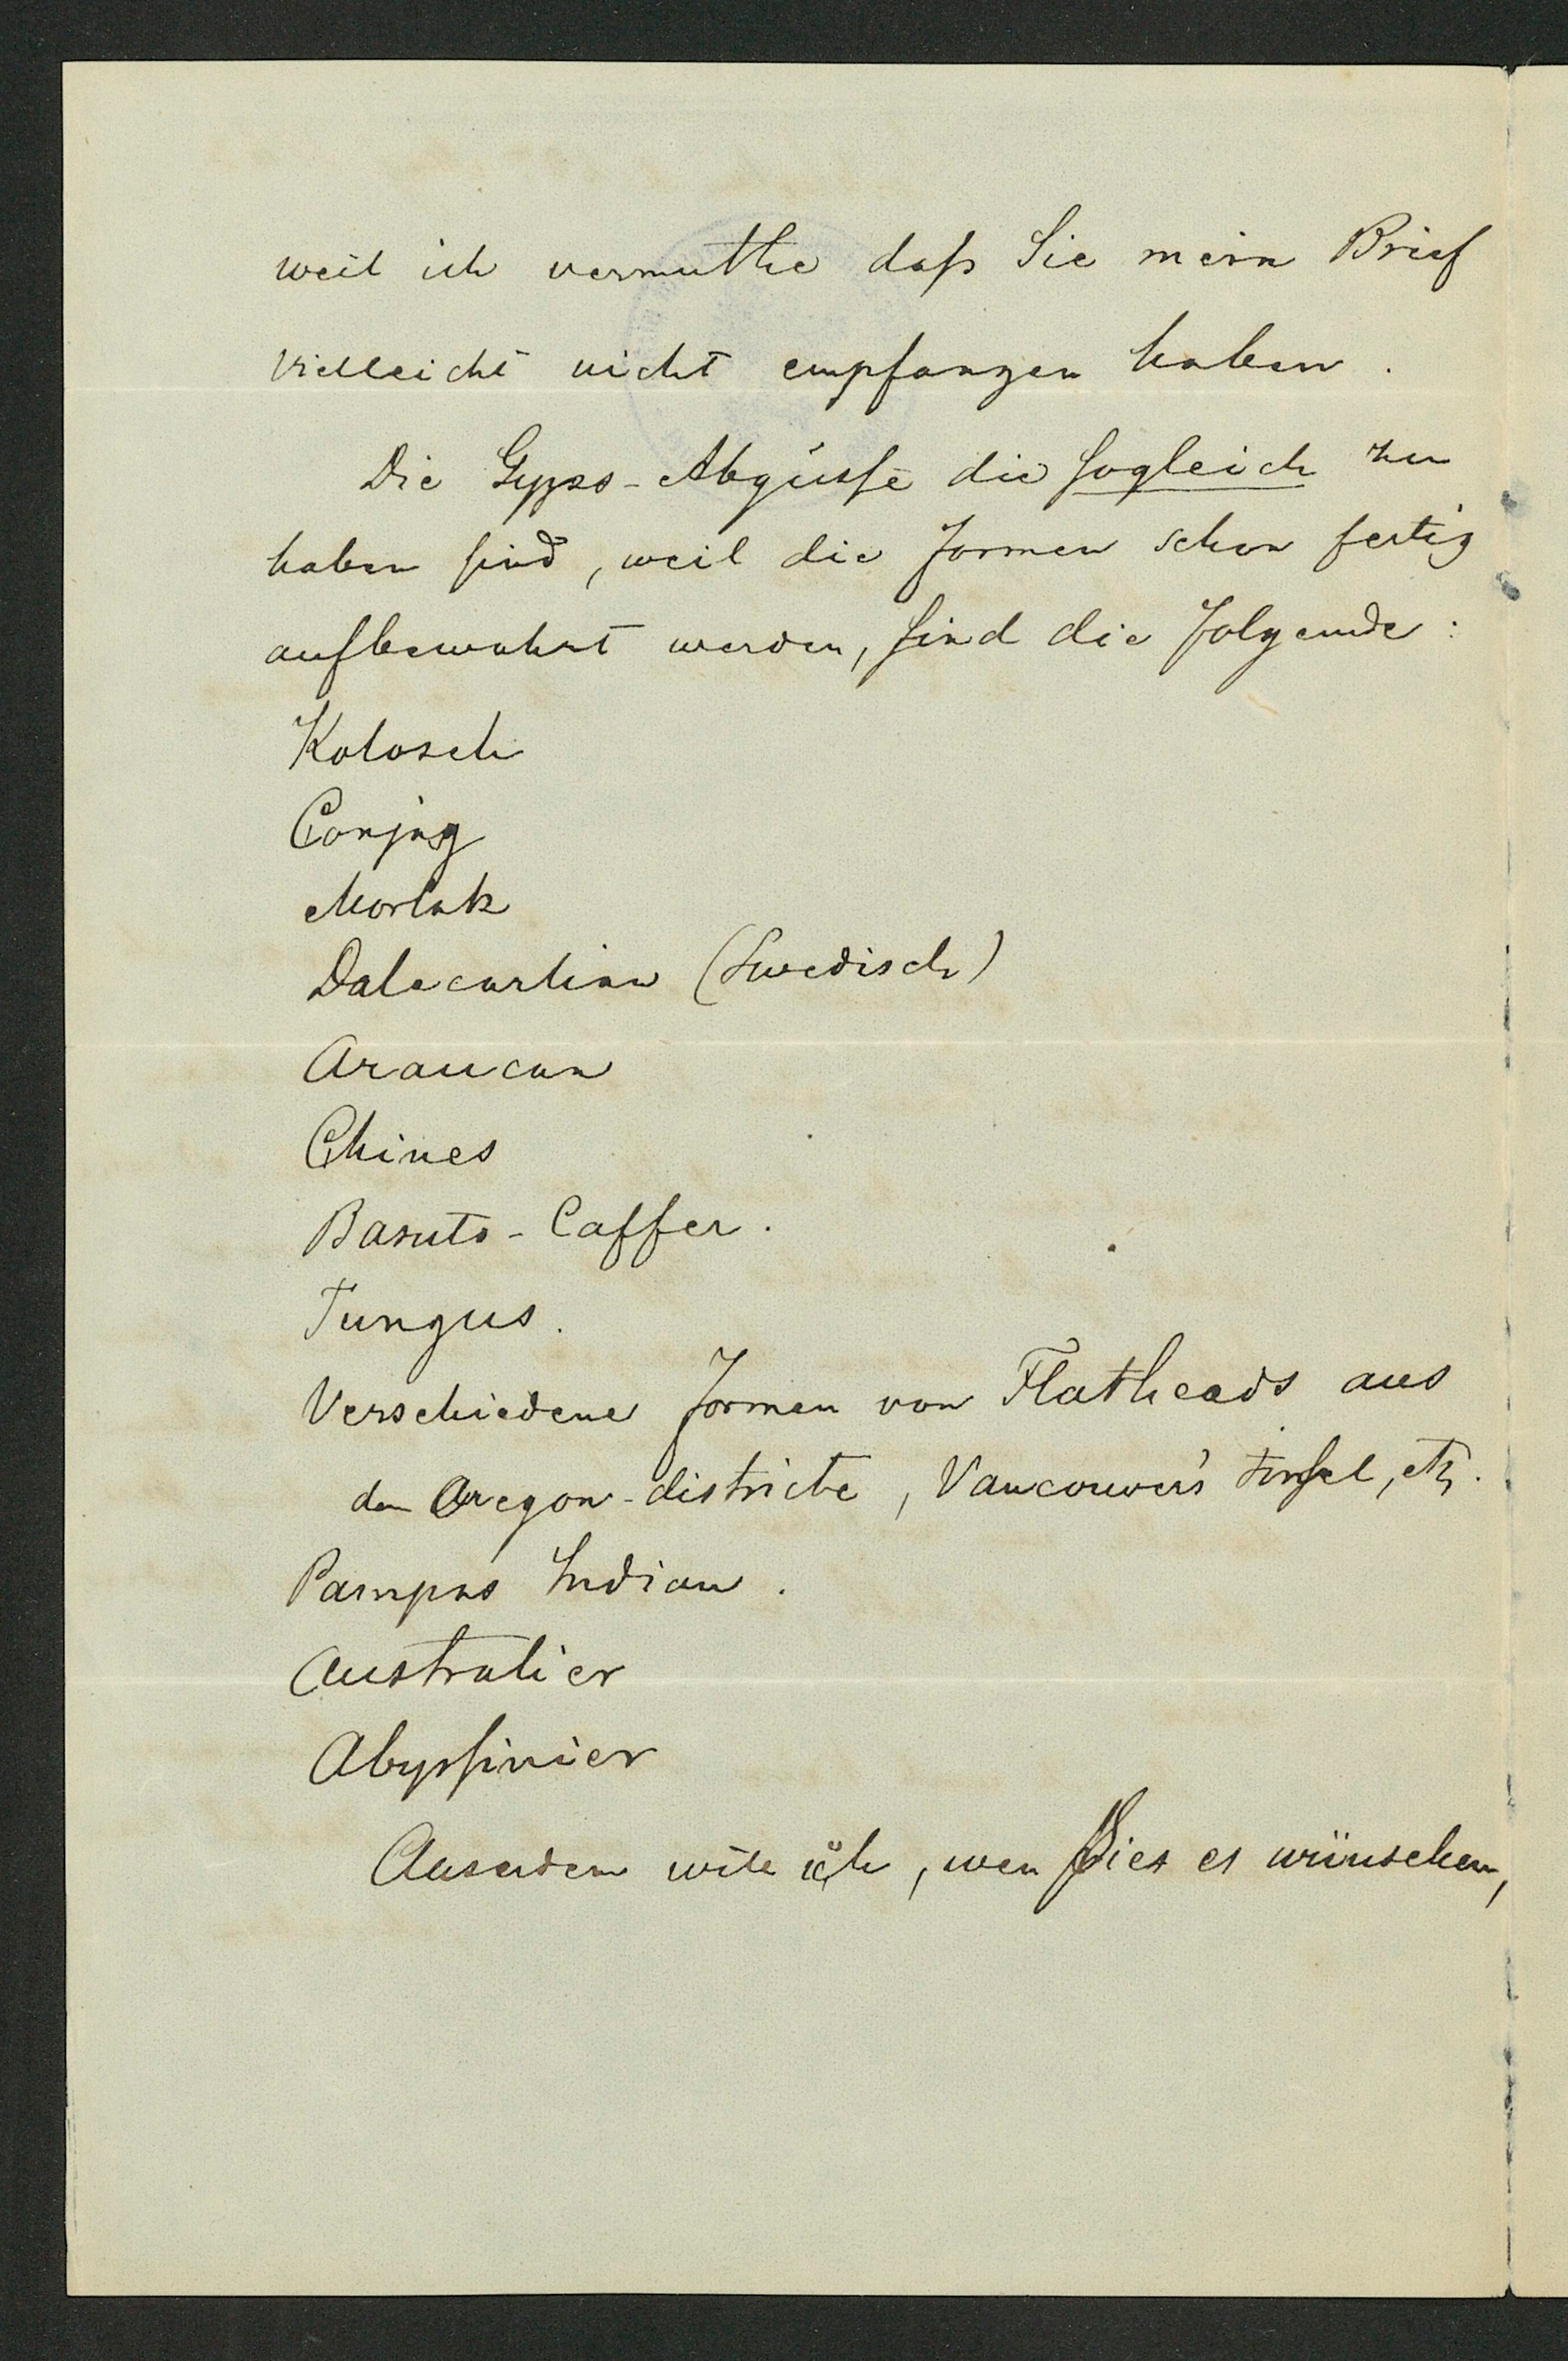 weil ich vermuthe daß Sie mein Brief
vielleicht nicht empfangen haben.
Die Gyps-Abgüsse die sogleich zu
haben sind, weil die Formen schon fertig
aufbewahrt werden, sind die Folgende:
Kolosch
Conjag
Morlak
Dalecarlian (Swedisch)
Araucan
Chines
Basuto-Caffer.
Tungus.
Verschiedene Formen von Flatheads aus
den Oregon-districte, Vancouver's Insel, etz.
Pampas Indian.
Australier
Abyssinier
Auserdem wite ich, wen Sies es wünschen,